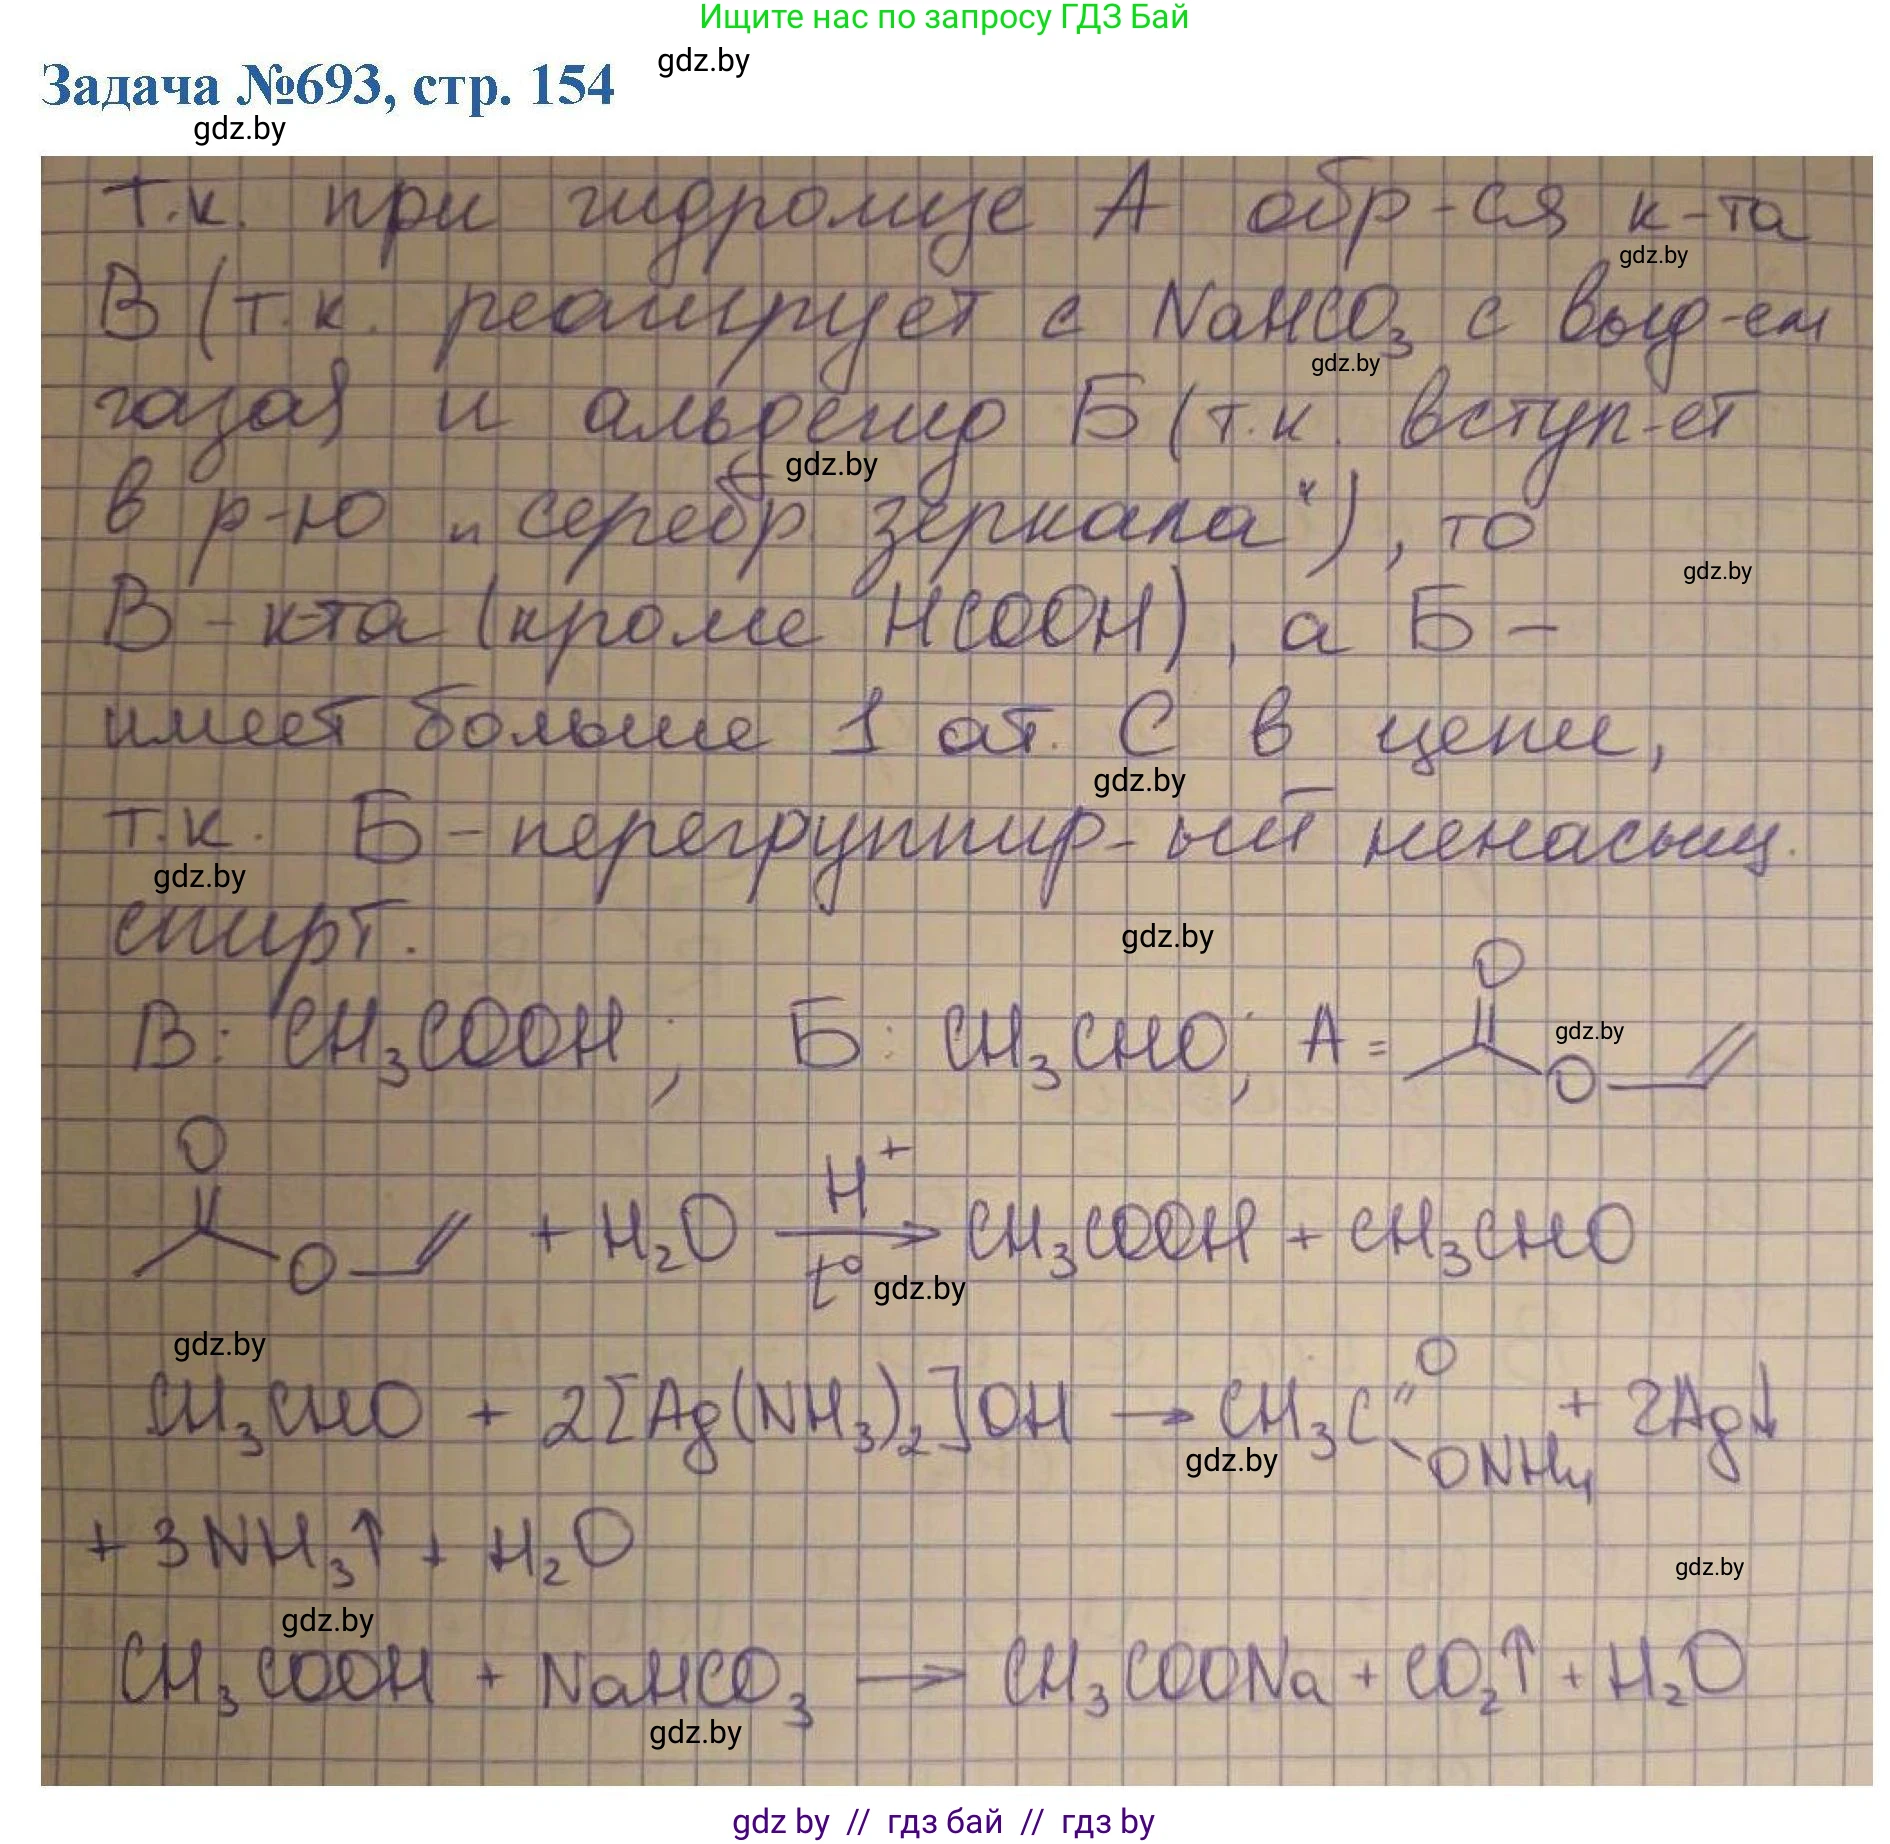 Ищите нас по запросу ГДЗ Бай
gdz.by
Задача №693, стр. 154
gdz.by
т.к. при гидролизе А обр-ся к-та
gdz.by
В (т.к. реагирует с NaHCO₃ с выд-ем
gdz.by
газа) и альдегид Б (т.к. вступ-ет
gdz.by
в р-ю „серебр. зеркала“), то
gdz.by
В - к-та (кроме HCOOH), а Б -
имеет больше 1 ат. С в цепи,
gdz.by
т.к. Б - перегруппир-ый ненасыщ.
gdz.by
спирт.
gdz.by
O
В: CH₃COOH; Б: CH₃CHO; А =
gdz.by
O
O
O + H₂O H⁺ t° → CH₃COOH + CH₃CHO
gdz.by
gdz.by
CH₃CHO + 2[Ag(NH₃)₂]OH → CH₃C O ONH₄ + 2Ag↓
gdz.by
+ 3NH₃↑ + H₂O
gdz.by
gdz.by
CH₃COOH + NaHCO₃ → CH₃COONa + CO₂↑ + H₂O
gdz.by
gdz by // гдз бай // гдз by